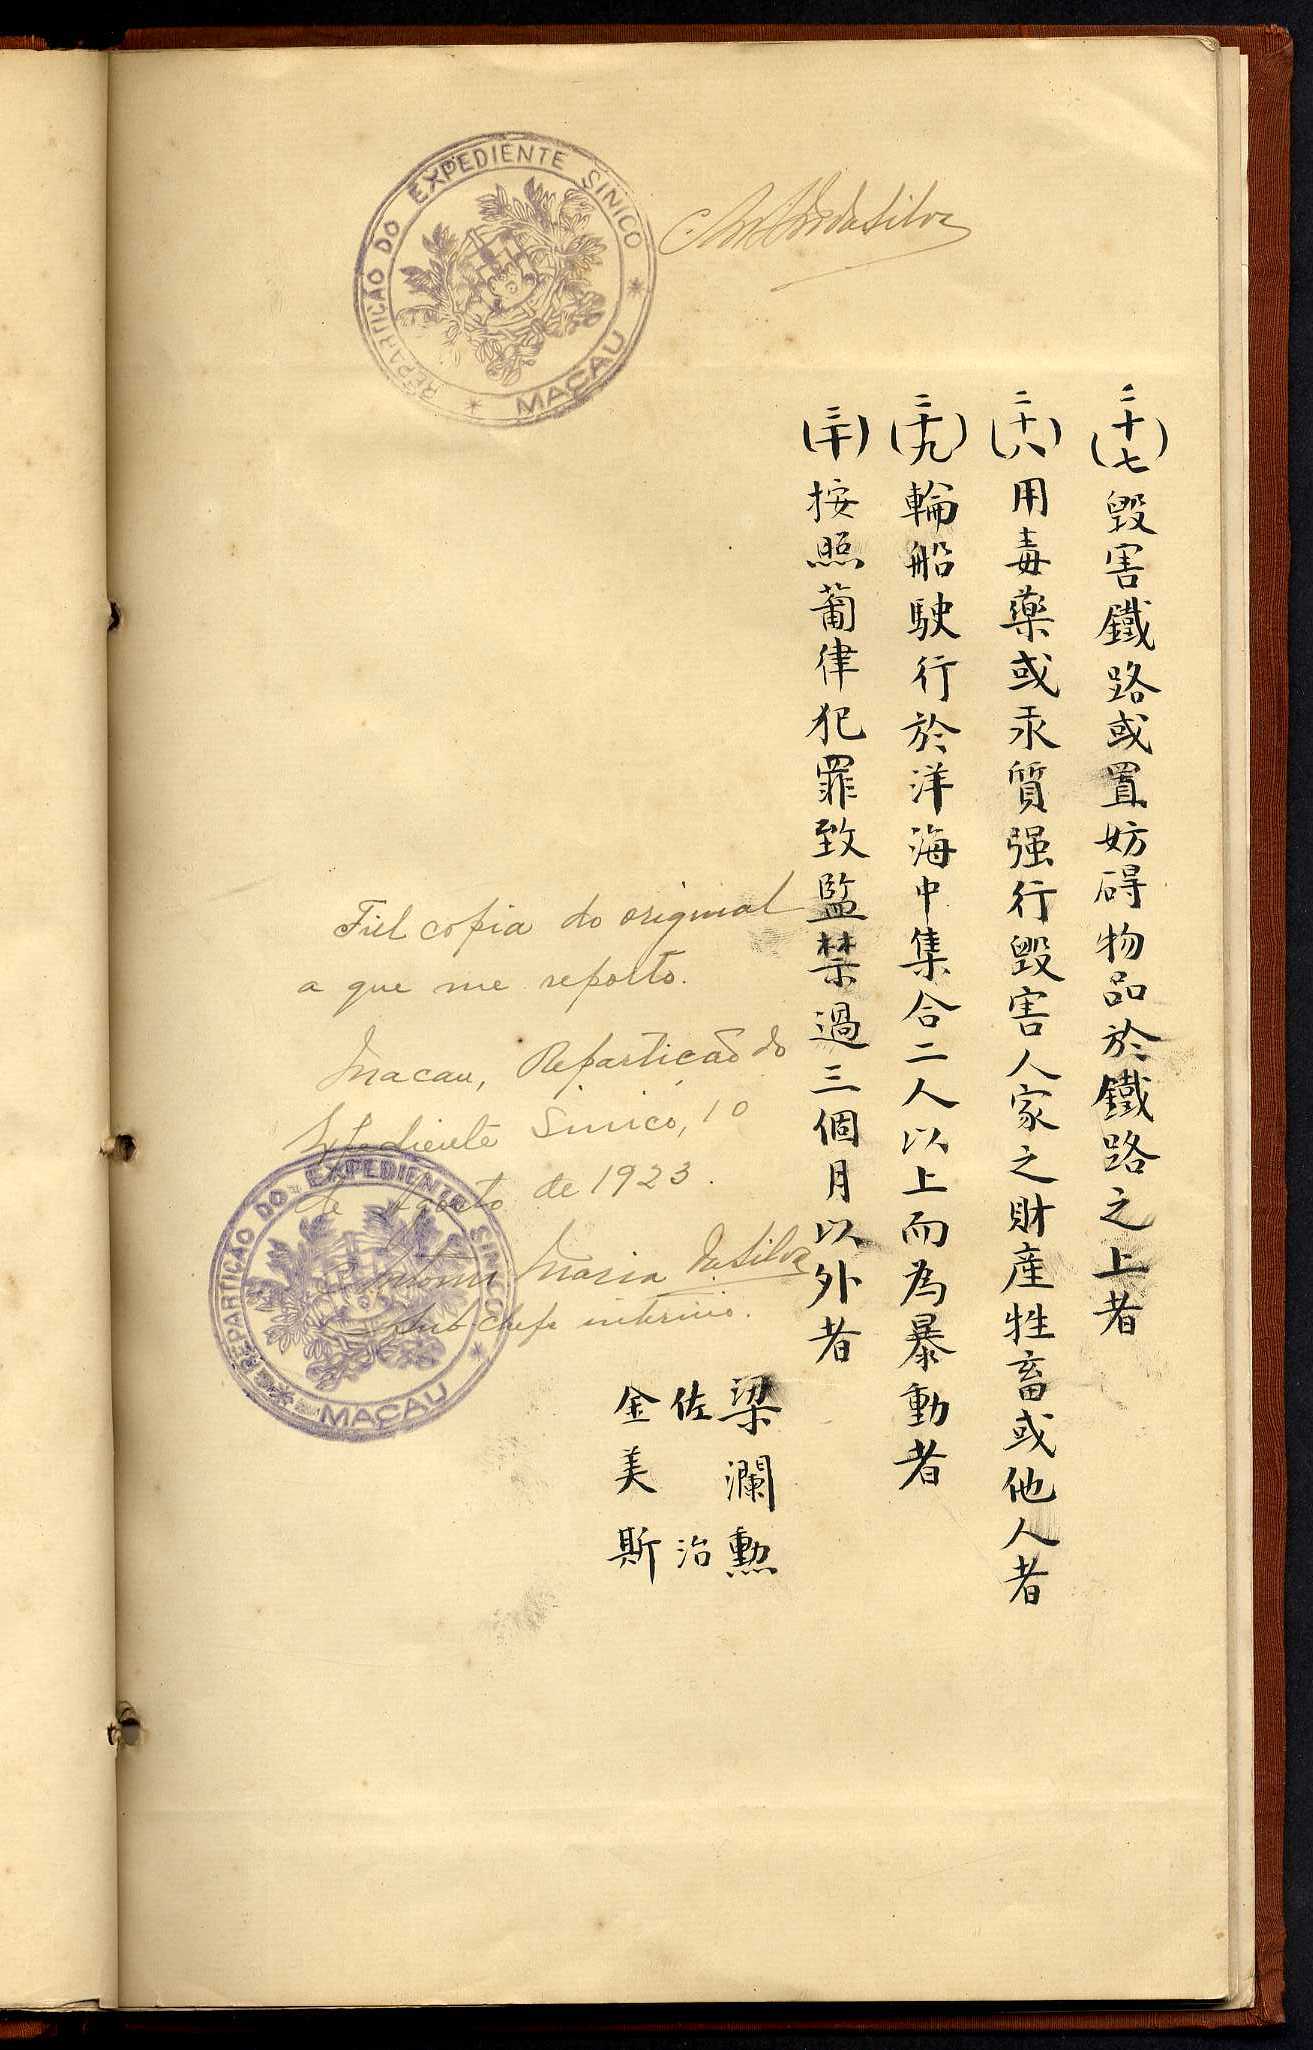 REPARTIÇÃO DO EXPEDIENTE SINICO * MACAU *
da Silva
(二十七)毀害鐵路或置妨碍物品於鐵路之上者
(二十八)用毒藥或汞質强行毀害人家之財產牲畜或他人者
(二十九)輪船駛行於洋海中集合二人以上而為暴動者
(三十)按照葡律犯罪致監禁過三個月以外者
梁瀾勲
佐治
金美斯
Fiel copia do original
a que me reporto.
Macau, Repartição do
Expediente Sinico, 10
de Agosto de 1923.
Antonio Maria da Silva
sub-chefe interino.
REPARTIÇÃO DO EXPEDIENTE SINICO * MACAU *